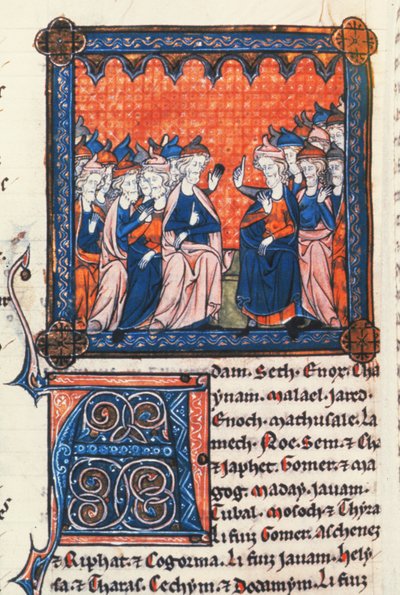 Adam. Seth. Enor. Cha
ynam. malael. Jared.
Enoch. mathusale. La
mech. Noe. Sem. ⁊ Ch̄
⁊ Japhet. Gomer. ⁊ ma
gog. maday. Javam.
Tubal. mosoch ⁊ Thyra
Li fuiz Gomer. Aschenez
⁊ Riphat. ⁊ Cogorma. Li fuiz Javam. Hely
sa. ⁊ Tharas. Cechym. ⁊ Dodanym. Li fuiz